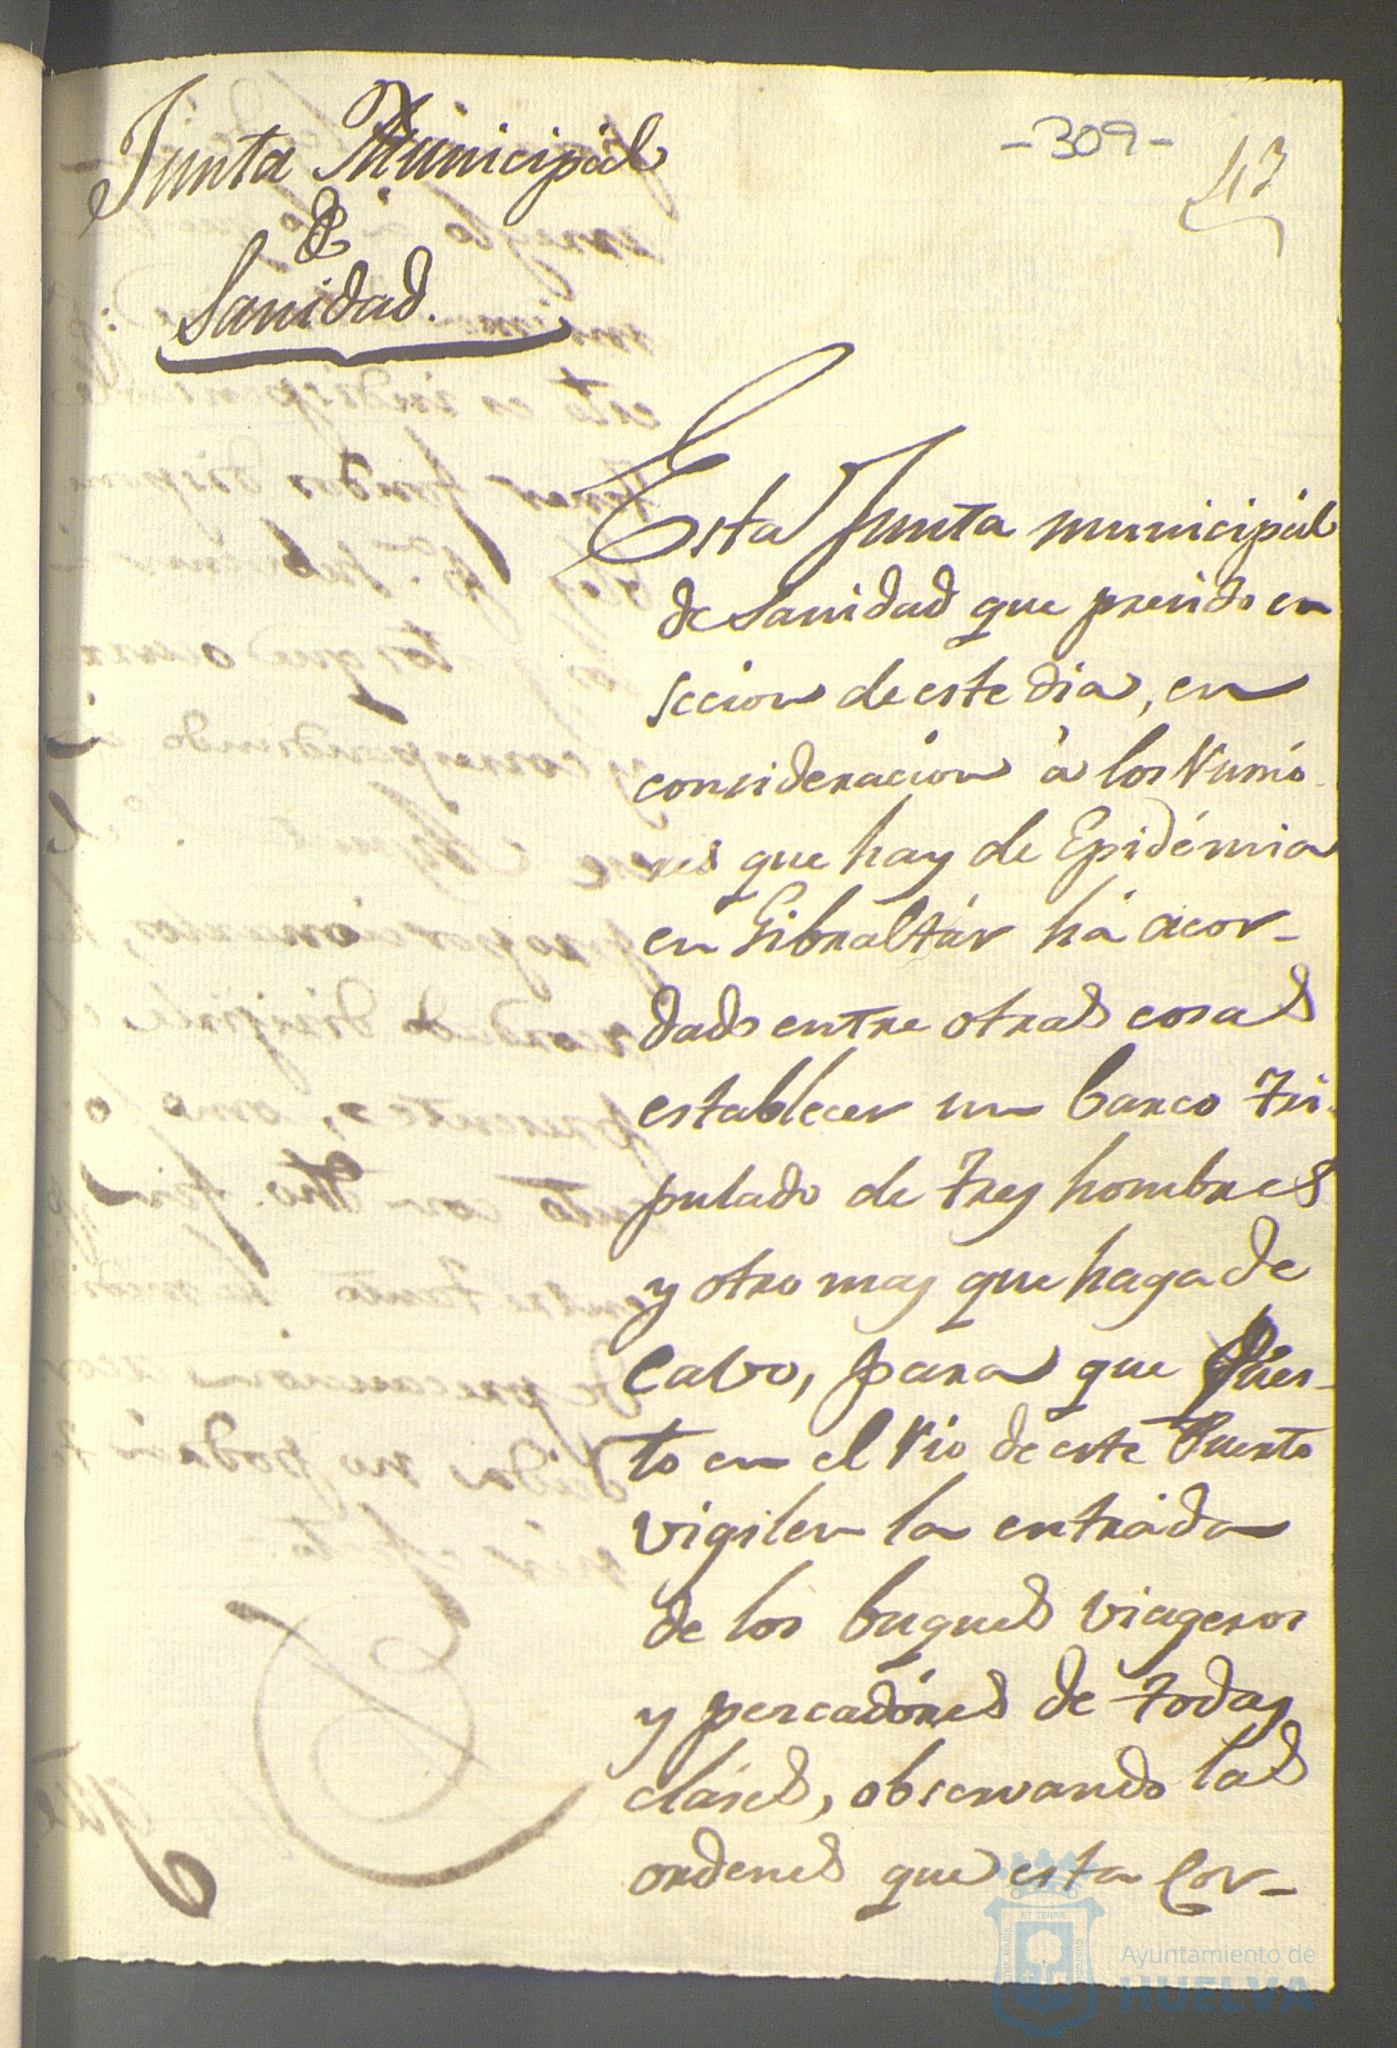 Junta Municipal
de
Sanidad.
-309-
43
Esta Junta municipal
de Sanidad que presido en
seccion de este dia, en
consideracion à los rumó
res que hay de Epidémia
en Gibraltár há acor-
dado entre otras cosas
establecer un barco tri-
pulado de tres hombres
y otro mas que haga de
Cabo, para que Pues-
to en el rio de este Puerto
vigilen la entráda
de los buques viageros
y pescadóres de todas
cláses, observando las
ordenes que esta Cor-
Ayuntamiento de
HUELVA